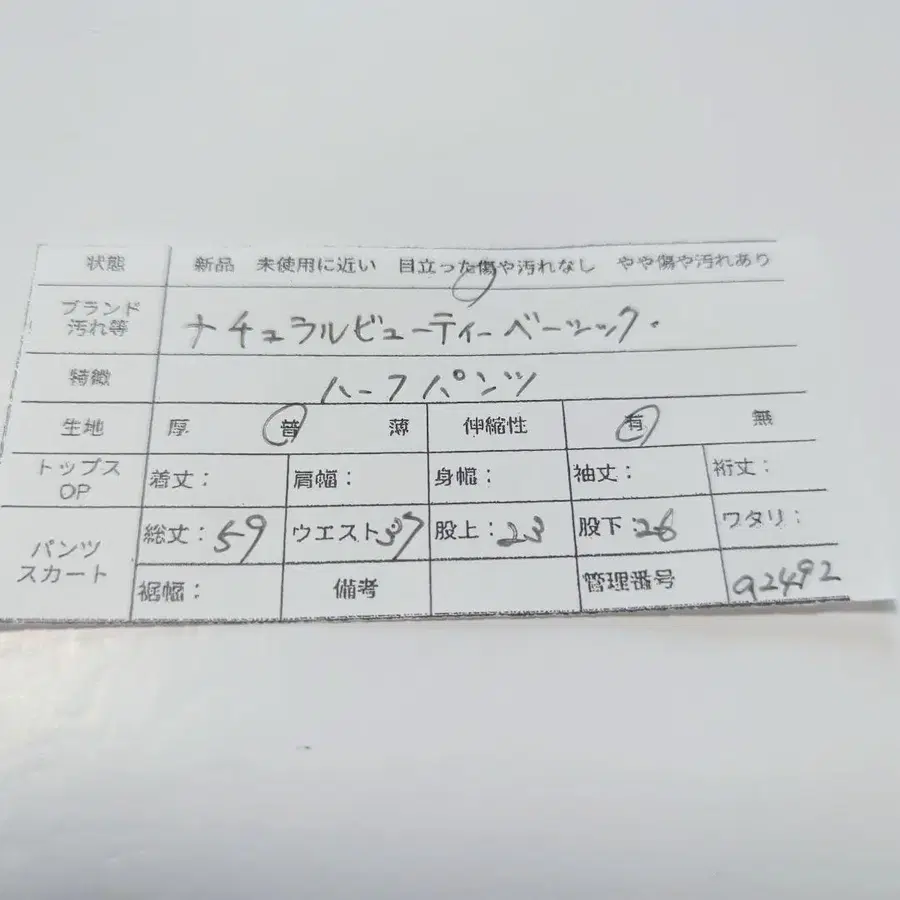 状態 新品 未使用に近い 目立った傷や汚れなし やや傷や汚れあり
ブランド
汚れ等
ナチュラルビューティーベーシック.
特徴 ハーフパンツ
生地 厚 普 薄 伸縮性 有 無
トップス
OP
着丈： 肩幅： 身幅： 袖丈： 裄丈：
パンツ
スカート
総丈：59 ウエスト37 股上：23 股下：26 ワタリ：
裾幅： 備考 管理番号 a2492